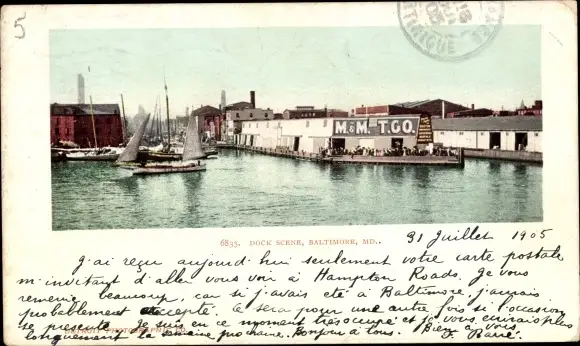 5
MARTINIQUE
M. & M. T. CO.
6833. DOCK SCENE, BALTIMORE, MD.
31 Juillet 1905
J'ai reçu aujourd'hui seulement votre carte postale
m'invitant d'aller vous voir à Hampton Roads. Je vous
remercie beaucoup, car si j'avais été à Baltimore j'aurais
probablement accepté. Ce sera pour une autre fois si l'occasion
se présente. Je suis en ce moment très occupé et je vous écrirai plus
longuement la semaine prochaine. Bonjour à tous. Bien à vous,
DETROIT PHOTOGRAPHIC
F. Barré.